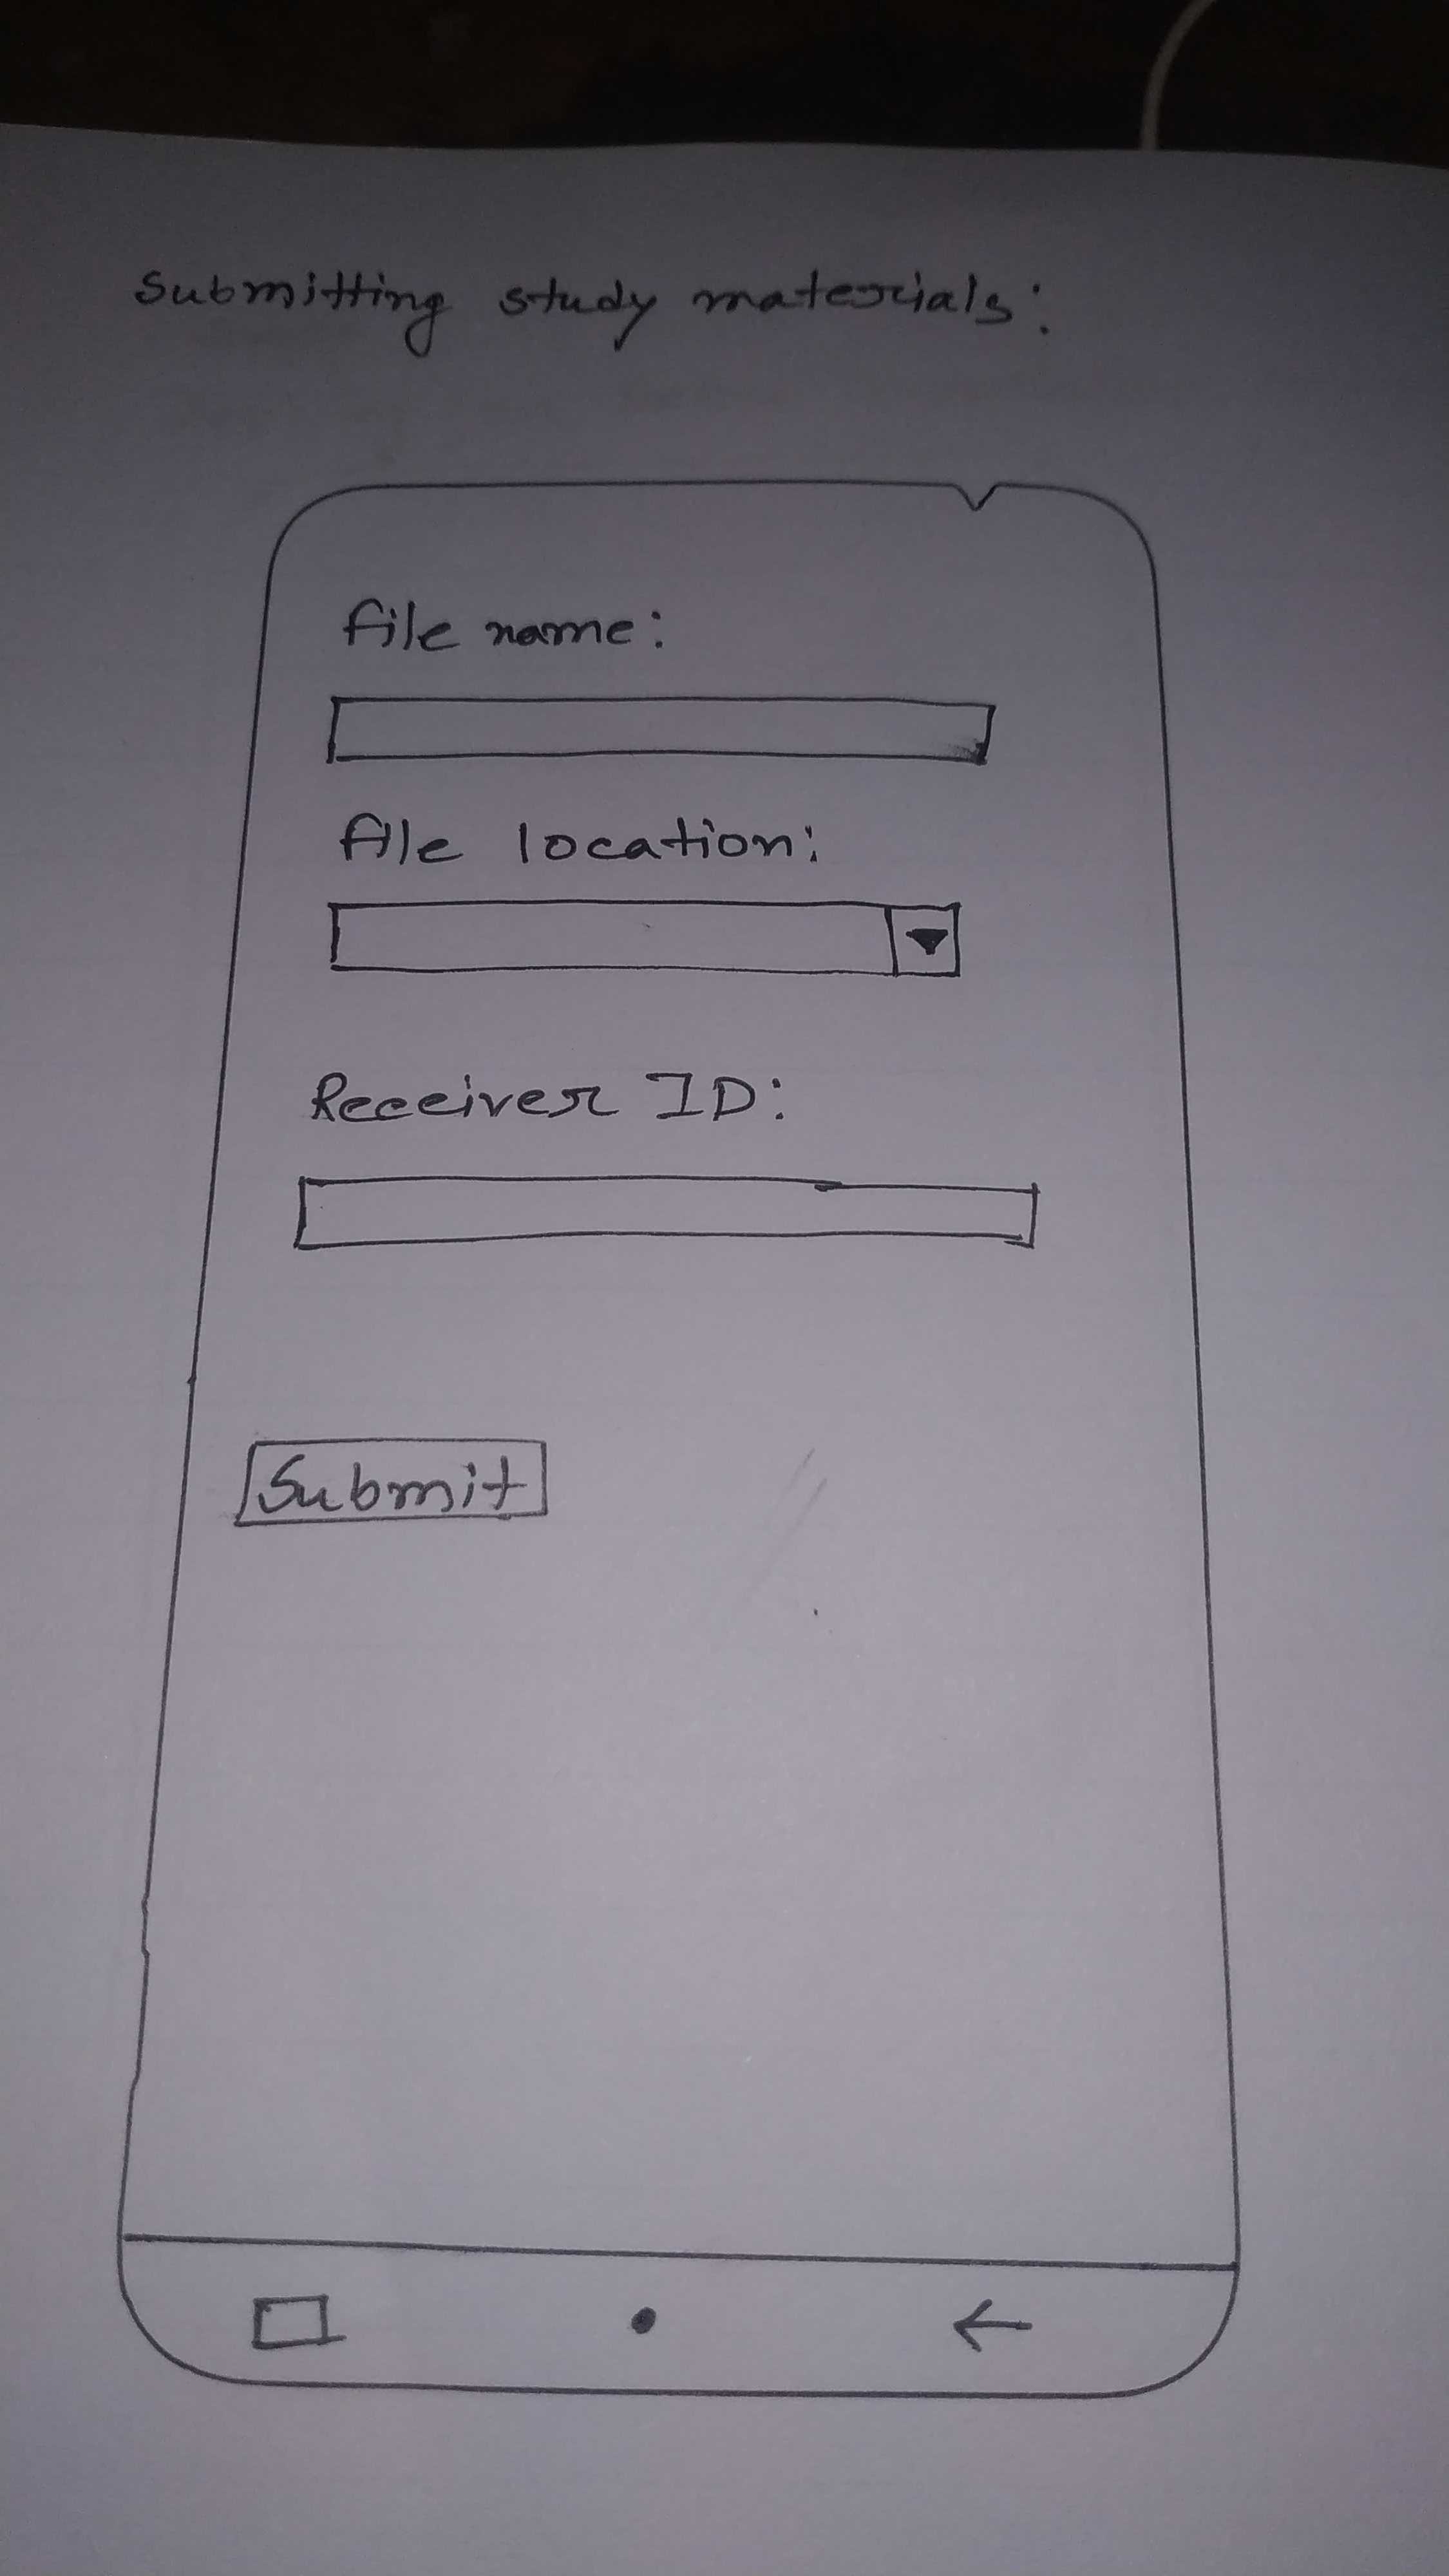 Submitting study materials:
File name:
File location:
Receiver ID:
Submit